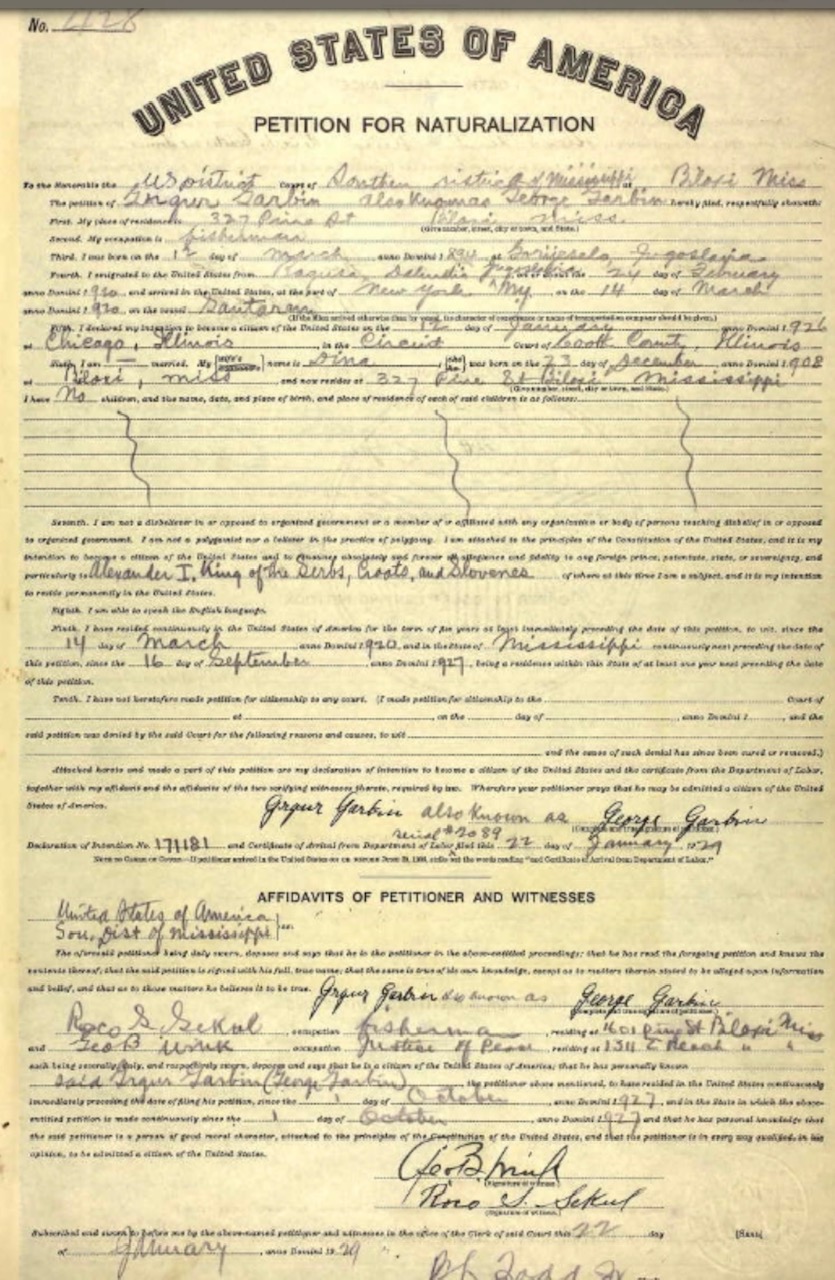 No. 428
UNITED STATES OF AMERICA
PETITION FOR NATURALIZATION
To the Honorable the US District Court of Southern District of Mississippi at Biloxi Miss
The petition of Grgur Garbin also known as George Garbin, hereby filed, respectfully showeth:
First. My place of residence is 327 Pine St Biloxi Miss.
(Give number, street, city or town, and State.)
Second. My occupation is fisherman
Third. I was born on the 12 day of March anno Domini 1894 at Jugoslavia
Fourth. I emigrated to the United States from Ragusa, Jugoslavia on or about the 24 day of February
anno Domini 1920, and arrived in the United States, at the port of New York NY, on the 14 day of March
anno Domini 1920, on the vessel
(If the alien arrived otherwise than by vessel, the character of conveyance or name of transportation company should be given.)
Fifth. I declared my intention to become a citizen of the United States on the 12 day of January anno Domini 1926
at Chicago, Illinois, in the Circuit Court of Cook County, Illinois
Sixth. I am — married. My wife's name is Dina, she was born on the 23 day of December, anno Domini 1908
at Biloxi, Miss and now resides at 327 Pine St Biloxi Mississippi
(Give number, street, city or town, and State.)
I have No children, and the name, date, and place of birth, and place of residence of each of said children is as follows:
Seventh. I am not a disbeliever in or opposed to organized government or a member of or affiliated with any organization or body of persons teaching disbelief in or opposed
to organized government. I am not a polygamist nor a believer in the practice of polygamy. I am attached to the principles of the Constitution of the United States, and it is my
intention to become a citizen of the United States and to renounce absolutely and forever all allegiance and fidelity to any foreign prince, potentate, state, or sovereignty, and
particularly to Alexander I, King of the Serbs, Croats, and Slovenes of whom at this time I am a subject, and it is my intention
to reside permanently in the United States.
Eighth. I am able to speak the English language.
Ninth. I have resided continuously in the United States of America for the term of five years at least immediately preceding the date of this petition, to wit, since the
14 day of March anno Domini 1920, and in the State of Mississippi continuously next preceding the date of
this petition, since the 16 day of September, anno Domini 1927, being a residence within this State of at least one year next preceding the date
of this petition.
Tenth. I have not heretofore made petition for citizenship to any court. (I made petition for citizenship to the Court of
at , on the day of , anno Domini 1 , and the
said petition was denied by the said Court for the following reasons and causes, to wit
and the cause of such denial has since been cured or removed.)
Attached hereto and made a part of this petition are my declaration of intention to become a citizen of the United States and the certificate from the Department of Labor,
together with my affidavit and the affidavits of the two verifying witnesses thereto, required by law. Wherefore your petitioner prays that he may be admitted a citizen of the United
States of America.
Grgur Garbin also known as George Garbin
(Complete and true signature of petitioner.)
serial # 2089
Declaration of Intention No. 171181 and Certificate of Arrival from Department of Labor filed this 22 day of January, 1929
NOTE TO CLERK OF COURT.—If petitioner arrived in the United States on or before June 29, 1906, strike out the words reading "and Certificate of Arrival from Department of Labor."
AFFIDAVITS OF PETITIONER AND WITNESSES
United States of America
Sou. Dist of Mississippi ss:
The aforesaid petitioner being duly sworn, deposes and says that he is the petitioner in the above-entitled proceedings; that he has read the foregoing petition and knows the
contents thereof; that the said petition is signed with his full, true name; that the same is true of his own knowledge, except as to matters therein stated to be alleged upon information
and belief, and that as to those matters he believes it to be true.
Grgur Garbin also known as George Garbin
(Complete and true signature of petitioner.)
Roco S. Sekul, occupation fisherman, residing at 401 Pine St Biloxi Miss
and Geo B Wink, occupation Justice of Peace, residing at 1311 E Beach " "
each being severally, duly, and respectively sworn, deposes and says that he is a citizen of the United States of America; that he has personally known
said Grgur Garbin (George Garbin), the petitioner above mentioned, to have resided in the United States continuously
immediately preceding the date of filing his petition, since the 1 day of October, anno Domini 1927, and in the State in which the above-
entitled petition is made continuously since the 1 day of October, anno Domini 1927 and that he has personal knowledge that
the said petitioner is a person of good moral character, attached to the principles of the Constitution of the United States, and that the petitioner is in every way qualified, in his
opinion, to be admitted a citizen of the United States.
Geo B Wink
(Signature of witness.)
Roco S. Sekul
(Signature of witness.)
Subscribed and sworn to before me by the above-named petitioner and witnesses in the office of the Clerk of said Court this 22 day [SEAL]
of January, anno Domini 1929